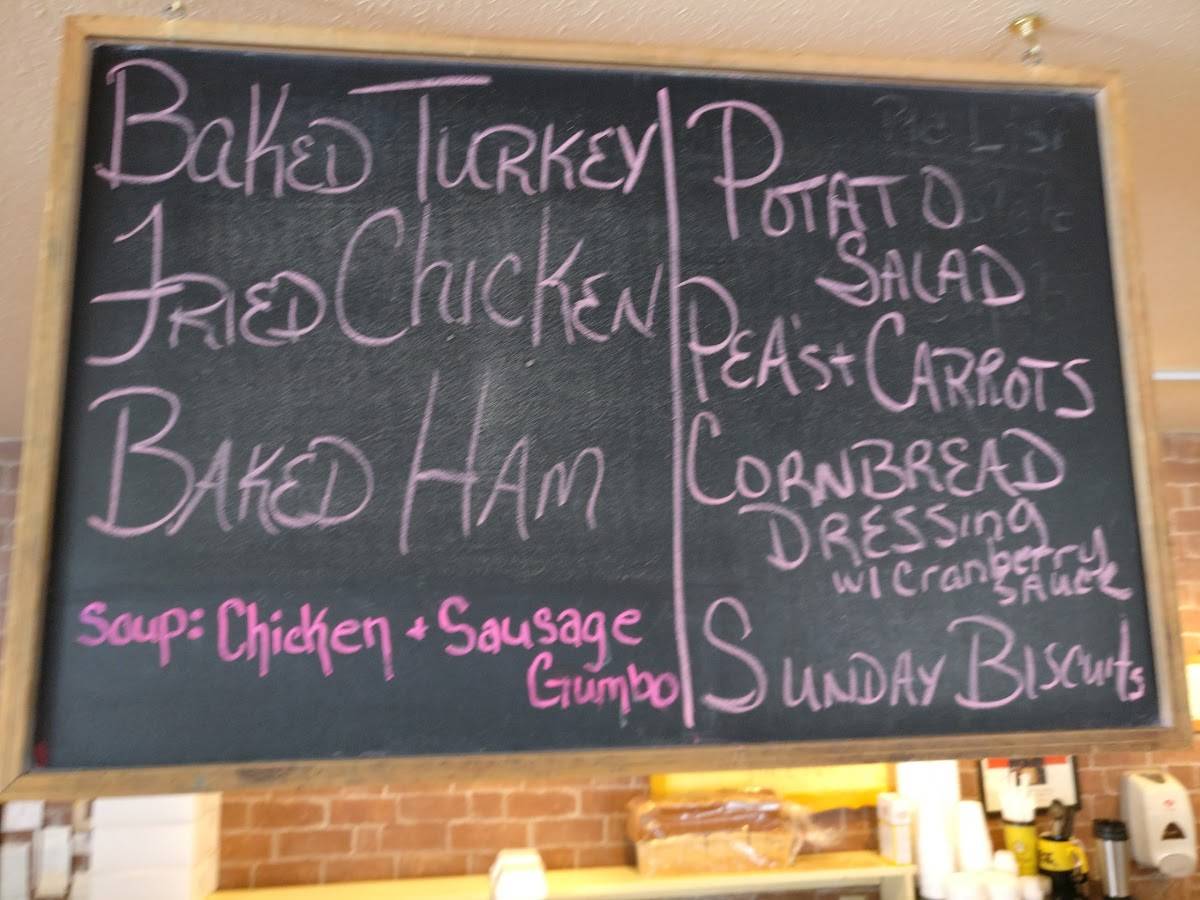 BaKED TURKEY
FRIED ChicKEN
BAKED HAM
Soup: Chicken + Sausage
Gumbo
POTATO
SALAD
PEA's + CARROTS
CORNBREAD
DRESSing
w/ Cranberry
SAUCE
SUNDAY BISCuits
Pie List